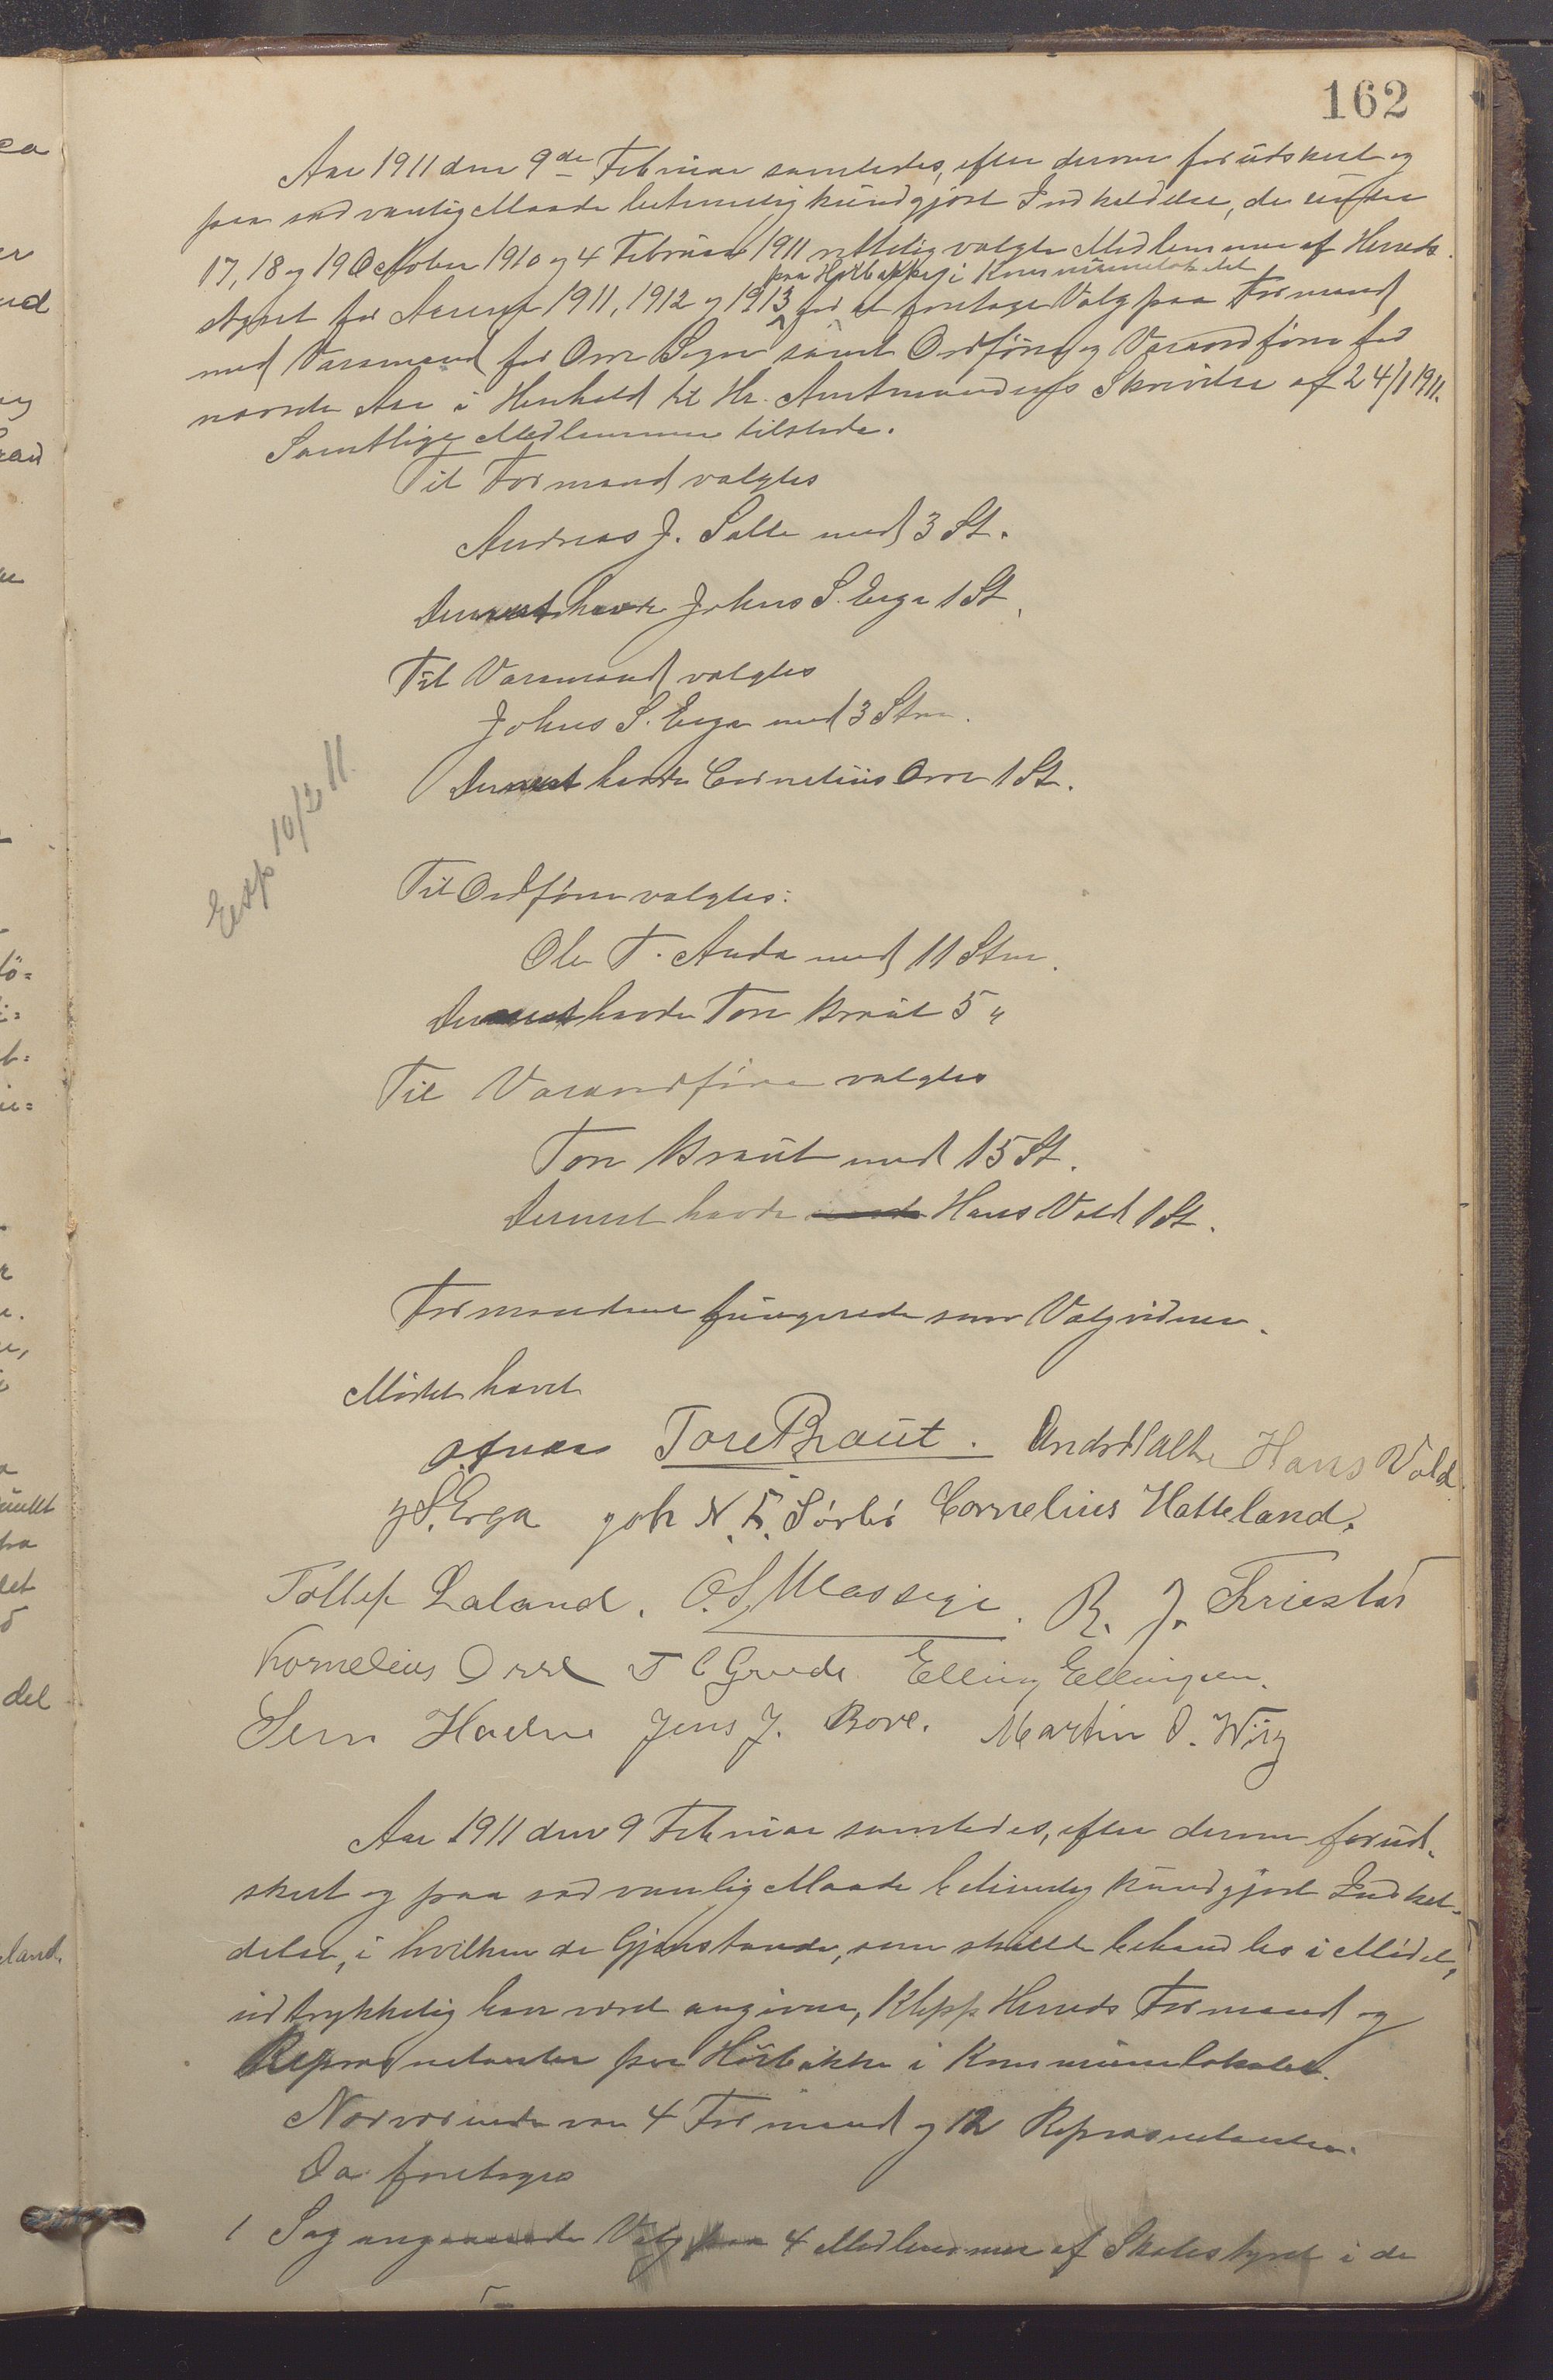 162
Aar 1911 den 9de Februar samledes, efter dertil forudskeet og
paa sædvanlig Maade betimelig kundgjort Indkaldelse, de under
17, 18 og 19 October 1910 og 4 Februar 1911 rettelig valgte Medlemmer af Herreds-
paa Hørbakke i Kommunelokalet
styret for Aarene 1911, 1912 og 1913 for at foretage Valg paa Formand
med Varamand for Orre Sogn samt Ordfører og Varaordfører for
nævnte Aar i Henhold til Hr. Amtmandens Skrivelse af 24/1 1911.
Samtlige Medlemmer tilstede.
Til Formand valgtes
Andreas J. Salte med 3 St.
Dernæst havde Johns S. Erga 1 St.
Til Varamand valgtes
Johns S. Erga med 3 Stm.
Dernæst havde Cornelius Orre 1 St.
Exp 10/2 11.
Til Ordfører valgtes:
Ole T. Anda med 11 Stm.
Dernæst havde Tore Braut 5 "
Til Varaordfører valgtes
Tore Braut med 15 St.
Dernæst havde Hans Vold 1 St.
Formændene fungerede som Valgvidner.
Mødet hævet
Tore Braut. Hans Vold
J S. Erga Joh N. E. Sørbø Cornelius Hatteland.
Tollef Laland. R. J. Friestad
Kornelius Orre T C Grude Elling Ellingsen.
Sem Hodne Jens J. Bore. Martin O. Wiig
Aar 1911 den 9 Februar samledes, efter dertil forud-
skeet og paa sædvanlig Maade betimelig kundgjort Indkal-
delse, i hvilken de Gjenstande, som skulde behandles i Mødet,
udtrykkelig har været angivne, Klepp Herreds Formænd og
Repræsentanter paa Hørbakke i Kommunelokalet.
Nærværende var 4 Formænd og 12 Repræsentanter.
Da foretoges
1 Sag angaaende Valg paa 4 Medlemmer af Skolestyret i de